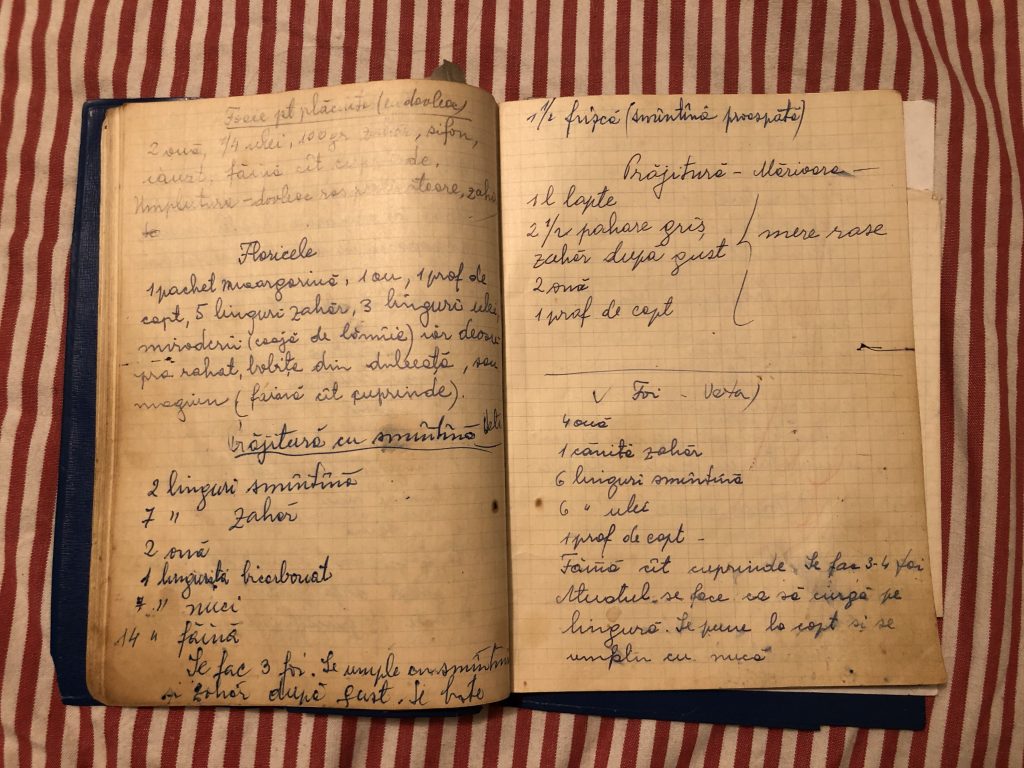 Foaie pt plăcinte (cu dovleac)
2 ouă, 1/4 ulei, 100 gr zahăr, sifon,
făină cît cuprinde,
Umplutura - dovleac ras pe răzătoare, zahăr
Floricele
1 pachet margarină, 1 ou, 1 praf de
copt, 5 linguri zahăr, 3 linguri ulei
mirodenii (coajă de lămîie) iar deasu-
pra rahat, bobițe din dulceață, sau
magiun (făină cît cuprinde).
Prăjitură cu smîntînă
2 linguri smîntînă
7 " zahăr
2 ouă
1 linguriță bicarbonat
7 " nuci
14 " făină
Se fac 3 foi. Se umple cu smîntînă
și zahăr după gust. Se bate
1/2 frișcă (smîntînă proaspătă)
Prăjitură - Mărioara -
1 l lapte
2 1/2 pahare griș
zahăr după gust } mere rase
2 ouă
1 praf de copt
Foi -
4 ouă
1 căniță zahăr
6 linguri smîntînă
6 " ulei
1 praf de copt -
Făină cît cuprinde. Se fac 3-4 foi
Aluatul se face ca să curgă pe
lingură. Se pune la copt și se
umplu cu nucă